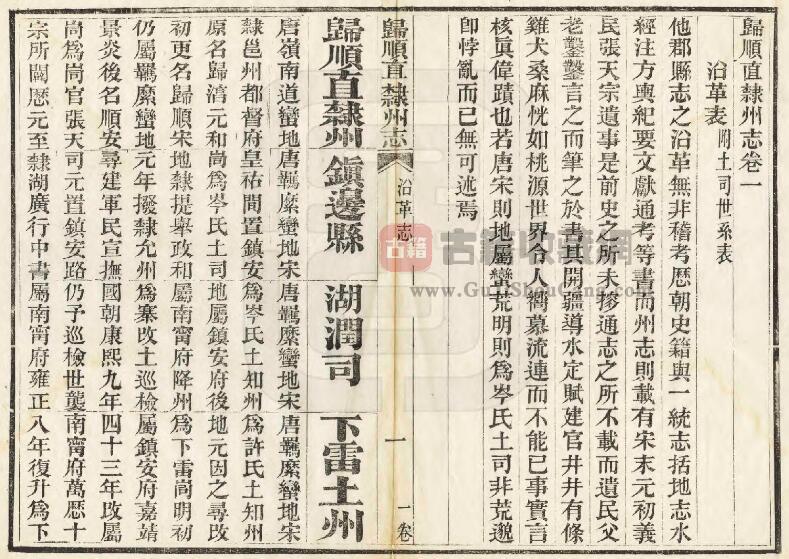 歸順直隸州志卷一
沿革表 附土司世系表
他郡縣志之沿革無非稽考歷朝史籍與一統志括地志水
經注方輿紀要文獻通考等書而州志則載有宋末元初義
民張天宗遺事是前史之所未搜通志之所不載而遺民父
老鑿鑿言之而筆之於書其開疆導水定賦建官井井有條
雞犬桑麻恍如桃源世界令人嚮慕流連而不能已事實言
核眞偉蹟也若唐宋則地屬蠻荒明則為岑氏土司非荒邈
卽悖亂而已無可述焉
歸順直隸州志 沿革志 一 一卷
歸順直隸州 鎮邊縣 湖潤司 下雷土州
唐嶺南道蠻地 唐羈縻蠻地宋 唐羈縻蠻地宋 唐羈縻蠻地宋
隸邕州都督府 皇祐間置鎮安 為岑氏土知州 為許氏土知州
原名歸淯元和 峝為岑氏土司 地屬鎮安府後 地元因之尋改
初更名歸順宋 地隸提舉政和 屬南甯府降州 為下雷峝明初
仍屬羈縻蠻地 元年撥隸允州 為寨改土巡檢 屬鎮安府嘉靖
景炎後名順安 尋建軍民宣撫 國朝康熙九年 四十三年改屬
峝為峝官張天 司元置鎮安路 仍予巡檢世襲 南甯府萬歷十
宗所闢歷元至 隸湖廣行中書 屬南甯府雍正 八年復升為下
古籍 古籍收藏網
www.GujiShouCang.com